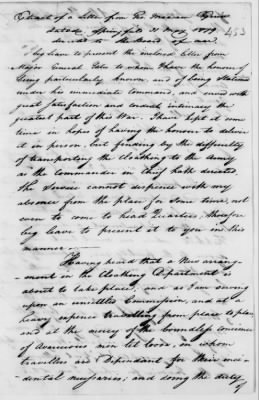 Extract of a Letter from
dated Springfield May 1779
453
"I beg leave to present the inclosed Letter from
Major General Gates to whom I have the honour of
being particularly known, and of being Stationed
under his immediate Command, and lived with
great satisfaction and cordial intimacy the
greatest part of this War. I have kept it some
time in hopes of having the honour to deliver
it in person, but finding by the difficulty
of transporting the Cloathing to the Army
as the Commander in Chief hath directed
the Service cannot dispence with my
absence from the place for some time, not
even to come to head Quarters, therefore
beg leave to present it to you in this
manner.—
Having heard that a New arrange-
ment in the Cloathing Department is
about to take place, and as I am serving
upon an unsettled Commission, and at a
heavy expence travelling from place to place
and at the mercy of the boundless conscience
of Avaricious men let loose, on whom
travellers are Dependant for their inci-
dental necessaries, and doing the duty